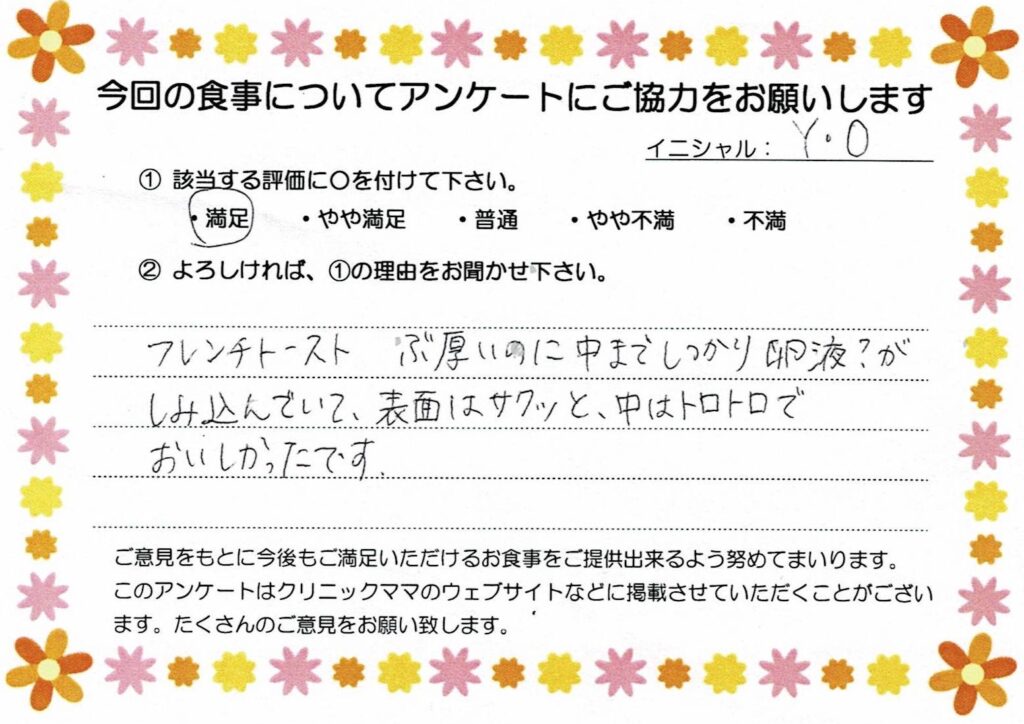 今回の食事についてアンケートにご協力をお願いします
イニシャル： Y・O
① 該当する評価に〇を付けて下さい。
・満足 ・やや満足 ・普通 ・やや不満 ・不満
② よろしければ、①の理由をお聞かせ下さい。
フレンチトースト ぶ厚いのに中までしっかり卵液？が
しみ込んでいて、表面はサクッと、中はトロトロで
おいしかったです。
ご意見をもとに今後もご満足いただけるお食事をご提供出来るよう努めてまいります。
このアンケートはクリニックママのウェブサイトなどに掲載させていただくことがござい
ます。たくさんのご意見をお願い致します。